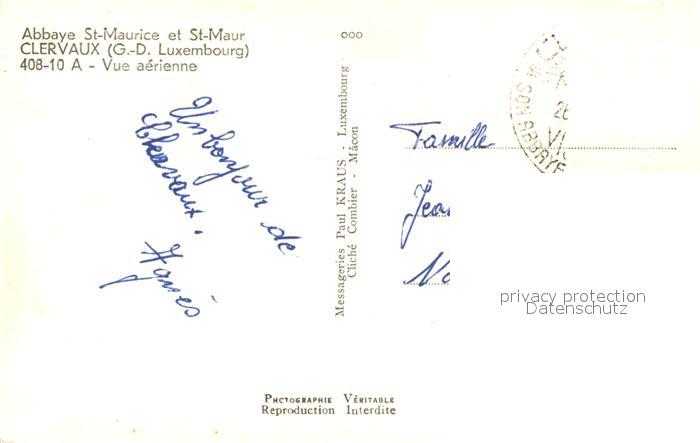 Abbaye St-Maurice et St-Maur
CLERVAUX (G.-D. Luxembourg)
408-10 A - Vue aérienne
Un bonjour de
Clervaux.
Agnès
Messageries Paul KRAUS - Luxembourg
Cliché Combier - Mâcon
Famille
Jea
privacy protection
Datenschutz
PHOTOGRAPHIE VÉRITABLE
Reproduction Interdite